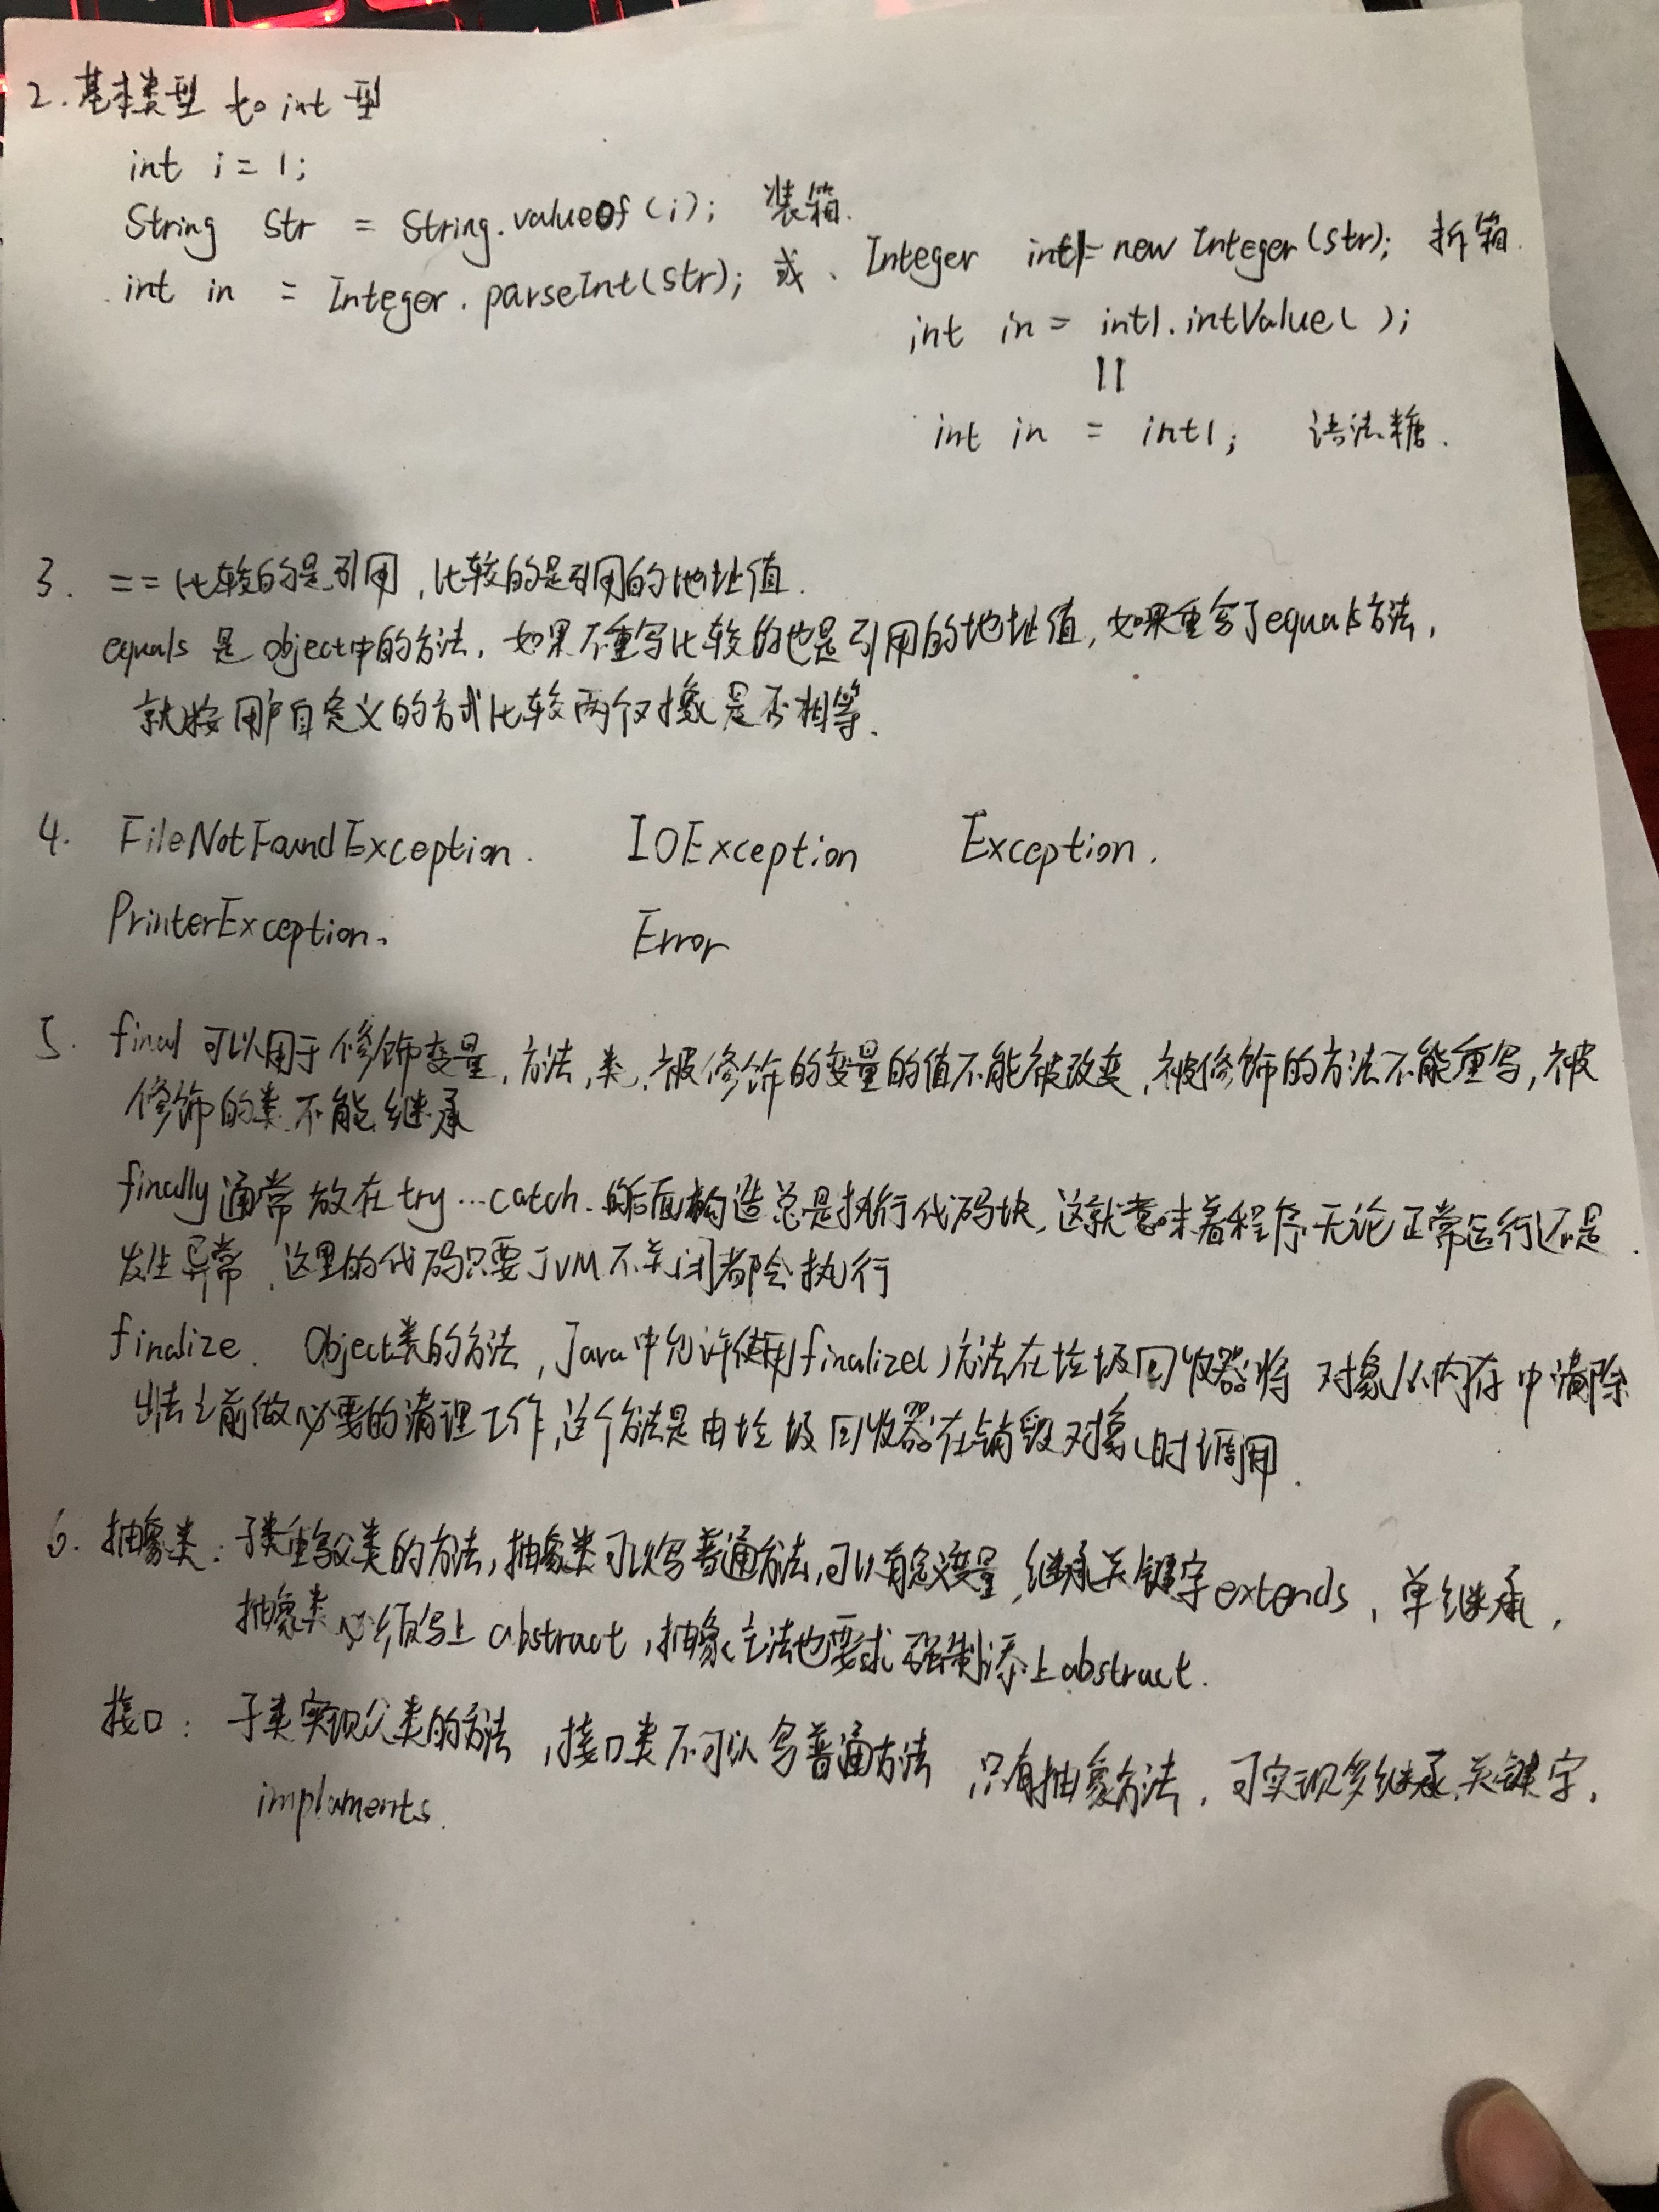 2.基本类型 to int 型
int i = 1;
String Str = String.valueOf(i); 装箱.
int in = Integer.parseInt(Str); 或、Integer int1= new Integer(Str); 拆箱.
int in = int1.intValue( );
||
int in = int1; 语法糖.
3. ==比较的是引用,比较的是引用的地址值.
equals 是 object中的方法,如果不重写比较的也是引用的地址值,如果重写了equals方法,
就按用户自定义的方式比较两个对象是否相等.
4. FileNotFoundException. IOException Exception.
PrinterException. Error
5. final 可以用于修饰变量,方法,类,被修饰的变量的值不能被改变,被修饰的方法不能重写,被
修饰的类不能继承
finally通常放在try…catch.的后面构造总是执行代码块,这就意味着程序无论正常运行还是
发生异常,这里的代码只要JVM不关闭都会执行
finalize. Object类的方法,Java中允许使用finalize()方法在垃圾回收器将对象从内存中清除
出去之前做必要的清理工作,这个方法是由垃圾回收器在销毁对象时调用.
6. 抽象类:子类重写父类的方法,抽象类可以写普通方法,可以有定义变量,继承关键字extends,单继承,
抽象类必须写上abstract,抽象方法也要求强制添上abstract.
接口: 子类实现父类的方法,接口类不可以写普通方法 只有抽象方法,可实现多继承,关键字,
implaments.